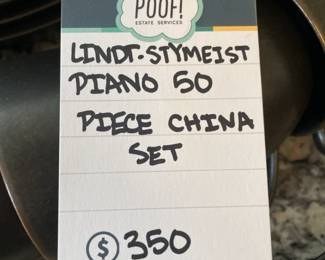 POOF!
ESTATE SERVICES
LINDT-STYMEIST
PIANO 50
PIECE CHINA
SET
$ 350